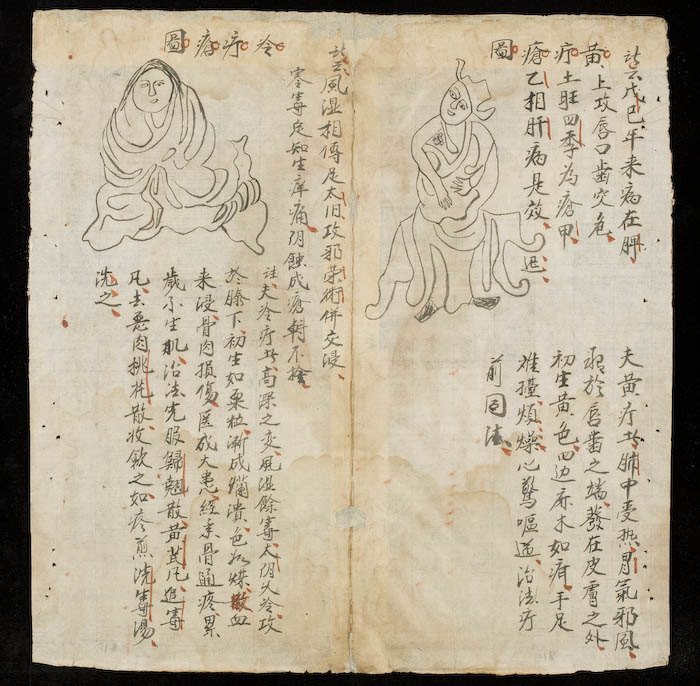 黄疔瘡圖
訣云戊巳年来病在脾
上攻唇口齒突危
土旺四季為瘡甲
乙相肝病是效
夫黄疔者肺中受热胃氣邪風
於唇齒之端發在皮膚之外
初生黄色四边麻木如痒手足
难擡煩燥心驚嘔逆治法疔
前同法
冷疔瘡圖
訣云風湿相傳足太阳攻邪荣衛併交浸
零毒定知生痒痛阴蝕成瘡軃不捨
註夫冷疔者高深之变風湿餘毒太阴久冷攻
於膝下初生如粟粒漸成爛潰色如煤散血
来浸骨肉損傷医成大患経年骨通疼累
歳不生肌治法先服歸翘散黄芪凡追毒
凡去惡肉桃花散收歛之如疼煎洗毒湯
洗之